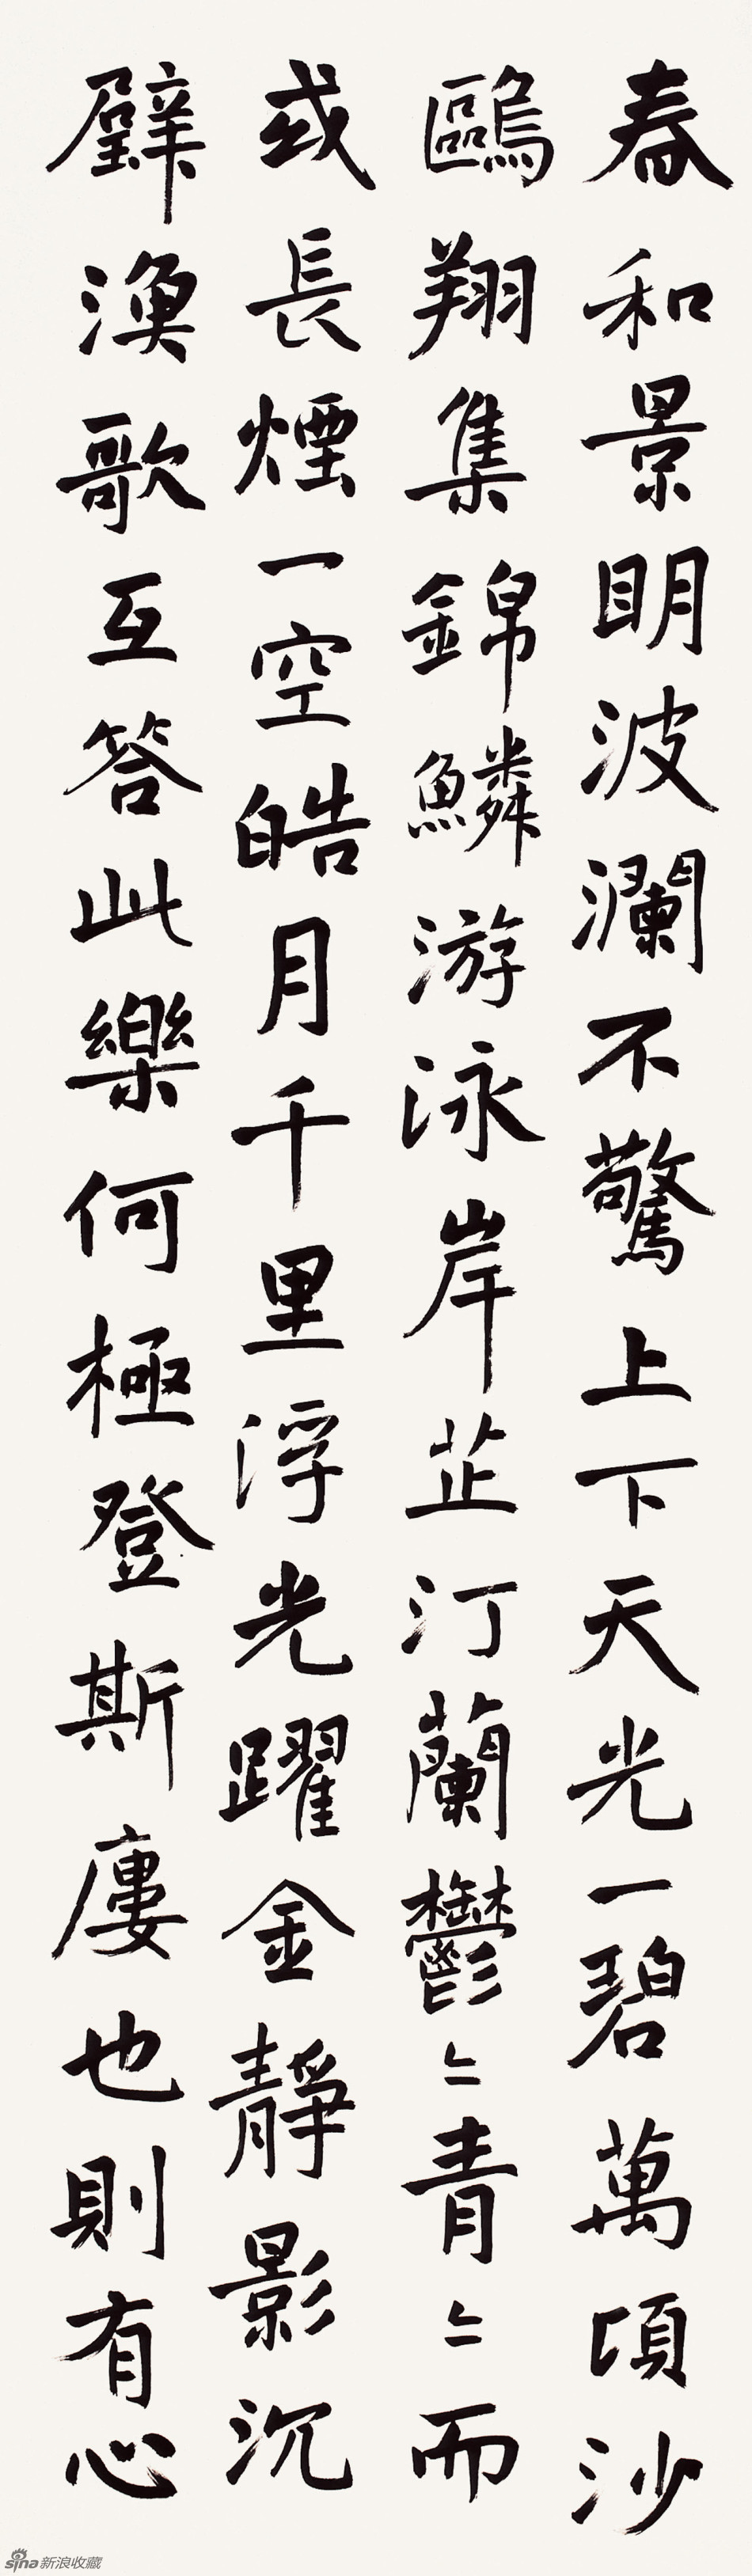 春和景明波瀾不驚上下天光一碧萬頃沙
鷗翔集錦鱗游泳岸芷汀蘭鬱〻青〻而
或長煙一空皓月千里浮光躍金靜影沉
璧漁歌互答此樂何極登斯廔也則有心
sina新浪收藏